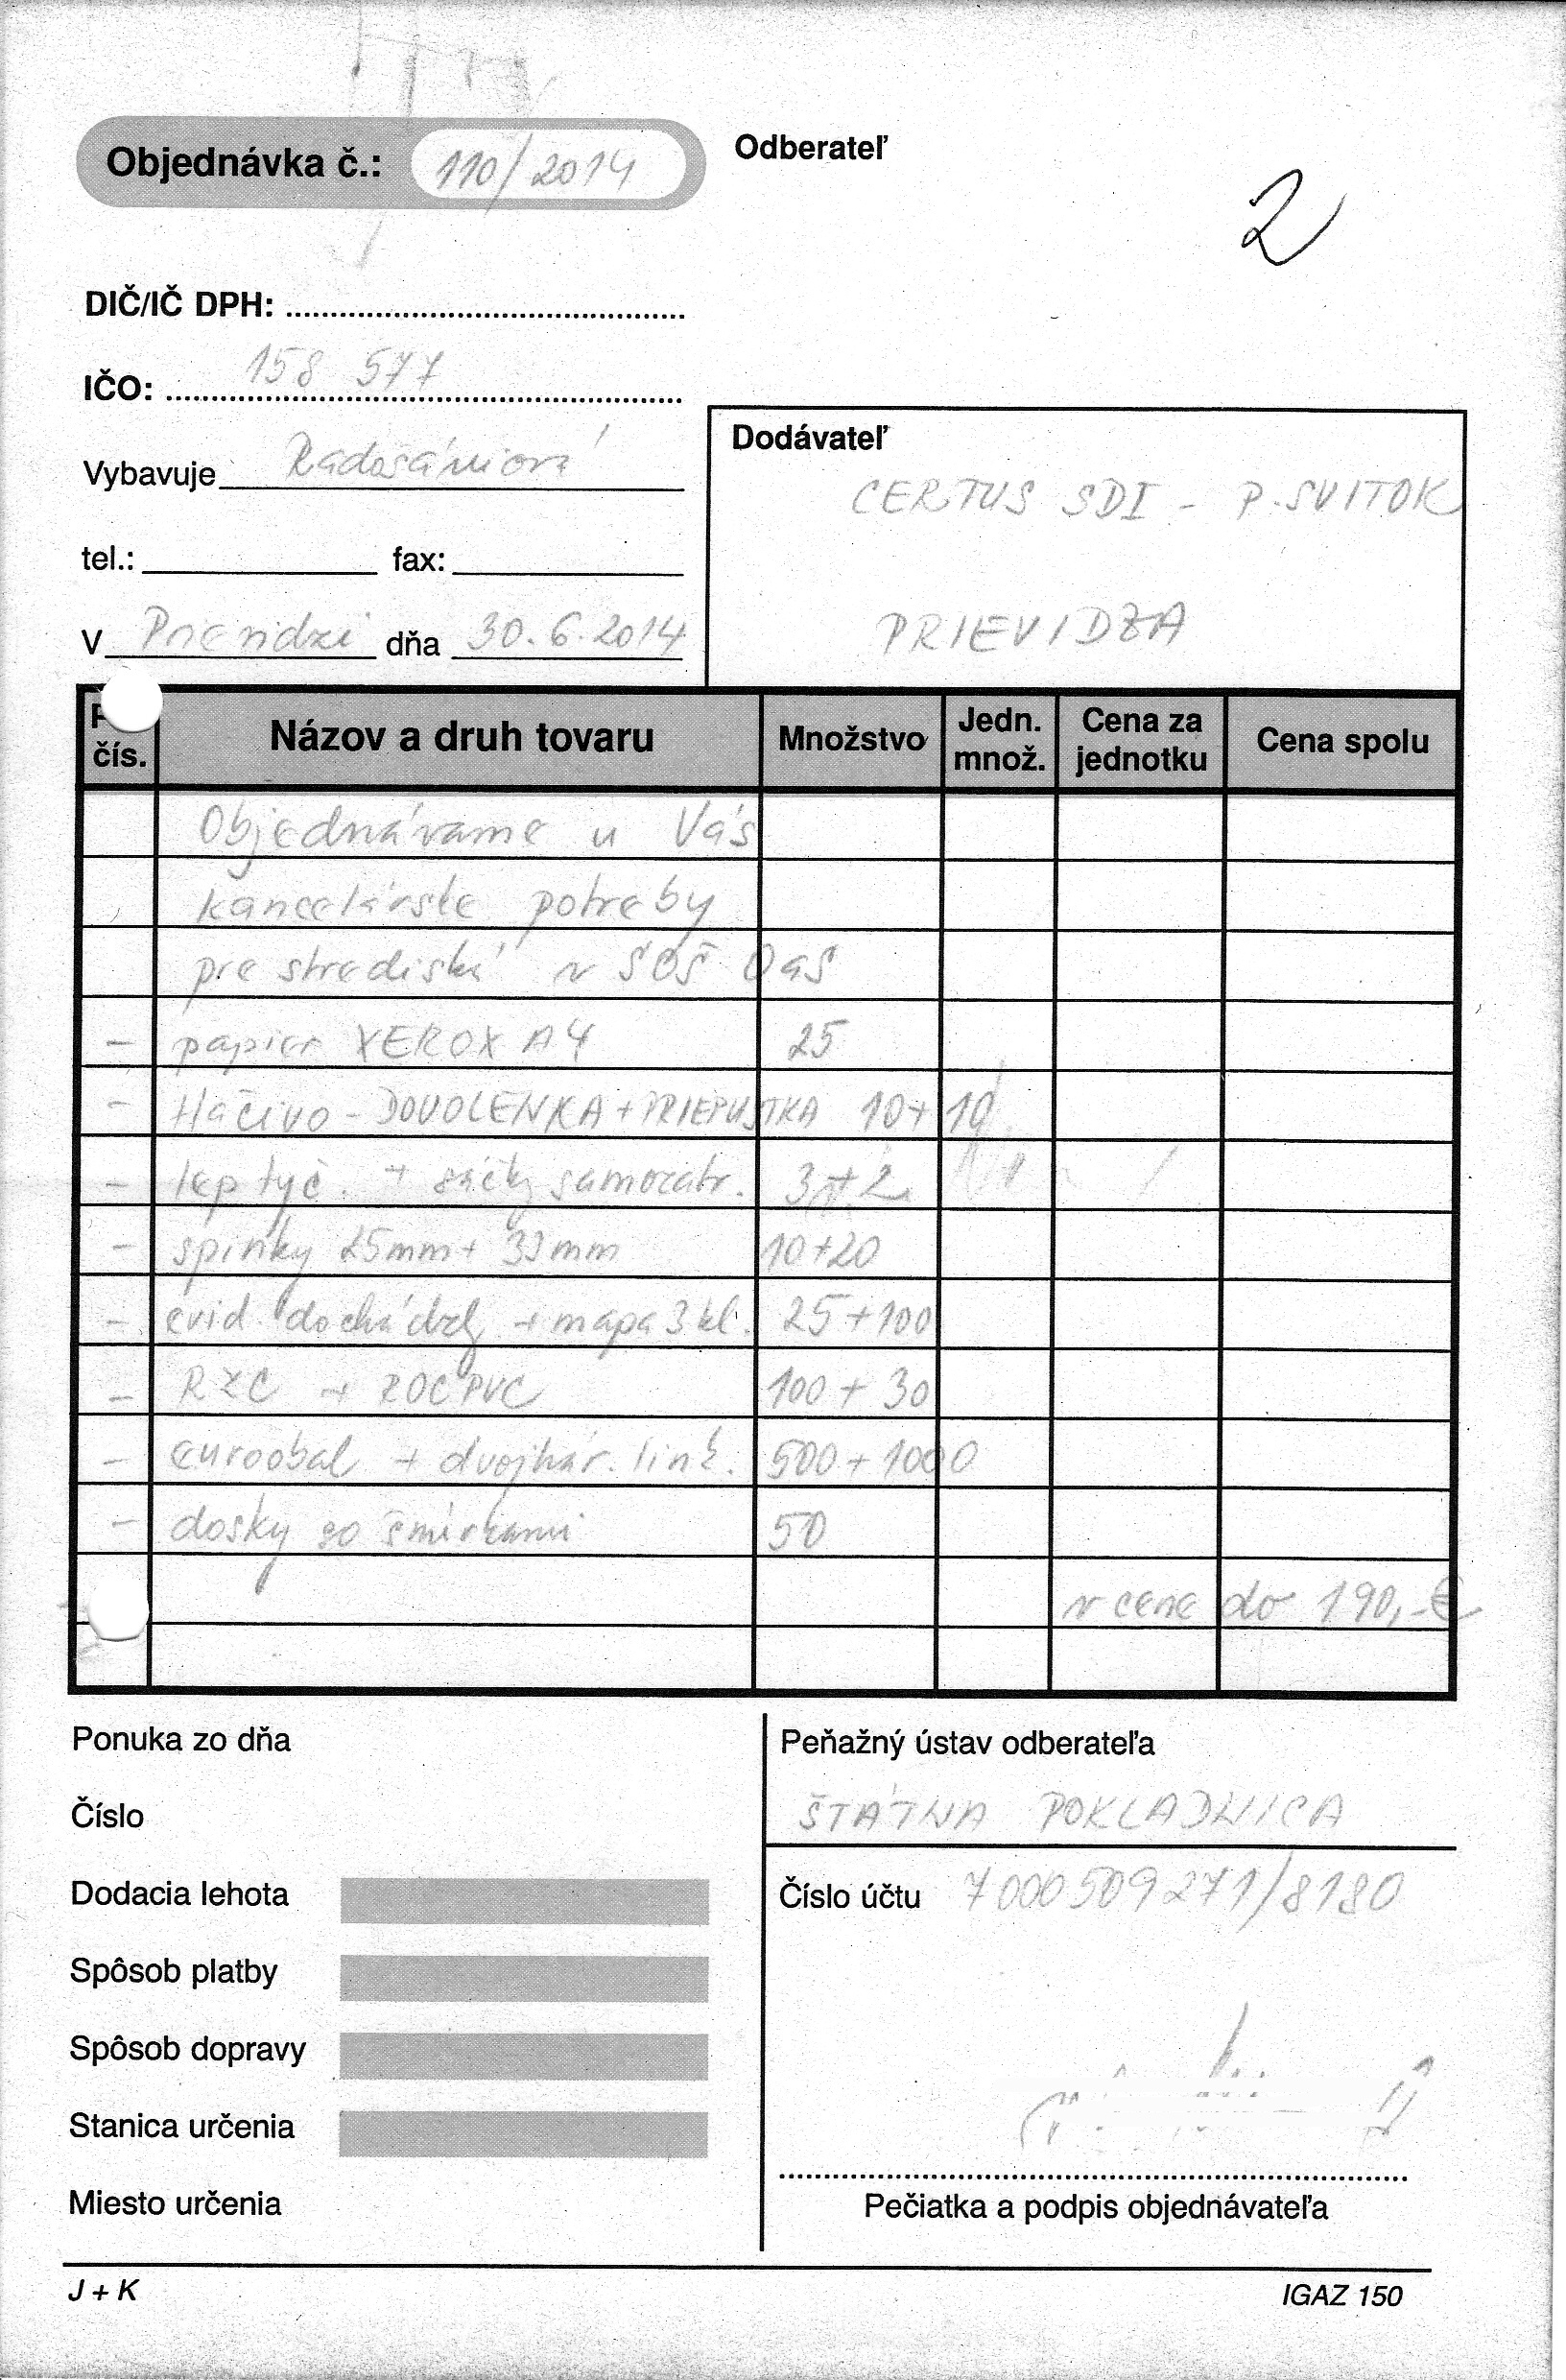 Objednávka č.: 110/2014
Odberateľ
2
DIČ/IČ DPH:
IČO: 158 577
Vybavuje
Dodávateľ
CERTUS SDI - P. SVITOK
tel.: fax:
PRIEVIDZA
V Prievidzi dňa 30.6.2014
čís. Názov a druh tovaru Množstvo Jedn. množ. Cena za jednotku Cena spolu
Objednávame u Vás
kancelárske potreby
pre strediská v SOŠ OaS
- papier XEROX A4 25
- tlačivo - DOVOLENKA + PRIEPUSTKA 10+10
- lep tyč. + sáčky samozatv. 3+2
- spinky 25mm + 33mm 10+20
- evid. dochádzky + mapa 3 kl. 25+100
- RZC + ROC PVC 100 + 30
- euroobal + dvojhár. link. 500 + 1000
- dosky so šnúrkami 50
v cene do 190,-€
Ponuka zo dňa
Peňažný ústav odberateľa
Číslo
ŠTÁTNA POKLADNICA
Dodacia lehota
Číslo účtu 7000509271/8180
Spôsob platby
Spôsob dopravy
Stanica určenia
Miesto určenia
Pečiatka a podpis objednávateľa
J + K
IGAZ 150